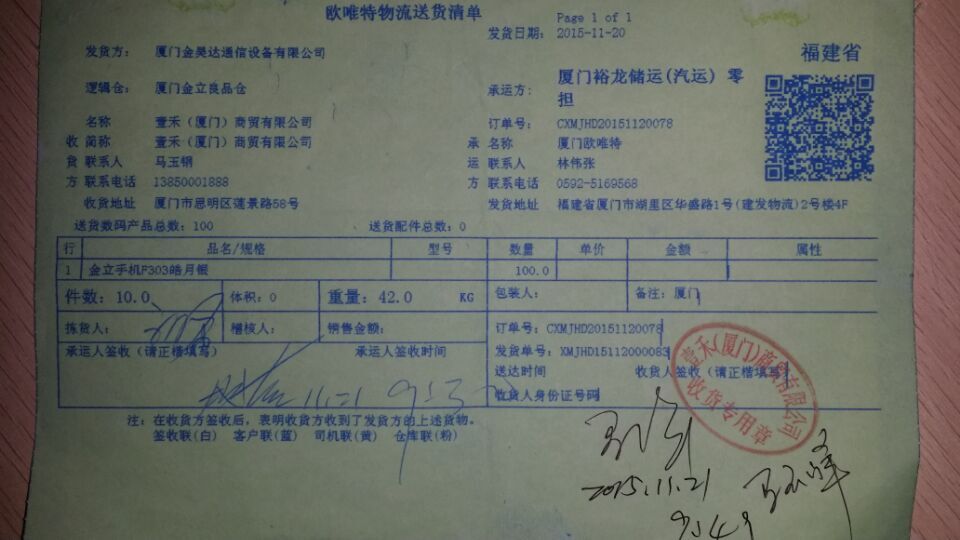 欧唯特物流送货清单
Page 1 of 1
发货日期: 2015-11-20
发货方: 厦门金昊达通信设备有限公司
福建省
逻辑仓: 厦门金立良品仓
承运方: 厦门裕龙储运(汽运) 零担
名称 壹禾（厦门）商贸有限公司
订单号: CXMJHD20151120078
收 简称 壹禾（厦门）商贸有限公司
承 名称 厦门欧唯特
货 联系人 马玉钢
运 联系人 林伟张
方 联系电话 13850001888
方 联系电话 0592-5169568
收货地址 厦门市思明区莲景路58号
发货地址 福建省厦门市湖里区华盛路1号(建发物流)2号楼4F
送货数码产品总数: 100 送货配件总数: 0
行 品名/规格 型号 数量 单价 金额 属性
1 金立手机F303皓月银 100.0
件数: 10.0 体积: 0 重量: 42.0 KG 包装人: 备注: 厦门
拣货人: 稽核人: 销售金额: 订单号: CXMJHD20151120078
承运人签收（请正楷填写） 承运人签收时间 发货单号: XMJHD15112000083
送达时间 收货人签收（请正楷填写）
收货人身份证号码
11.21
壹禾(厦门)商贸有限公司
收货专用章
注: 在收货方签收后，表明收货方收到了发货方的上述货物。
签收联(白) 客户联(蓝) 司机联(黄) 仓库联(粉)
2015.11.21